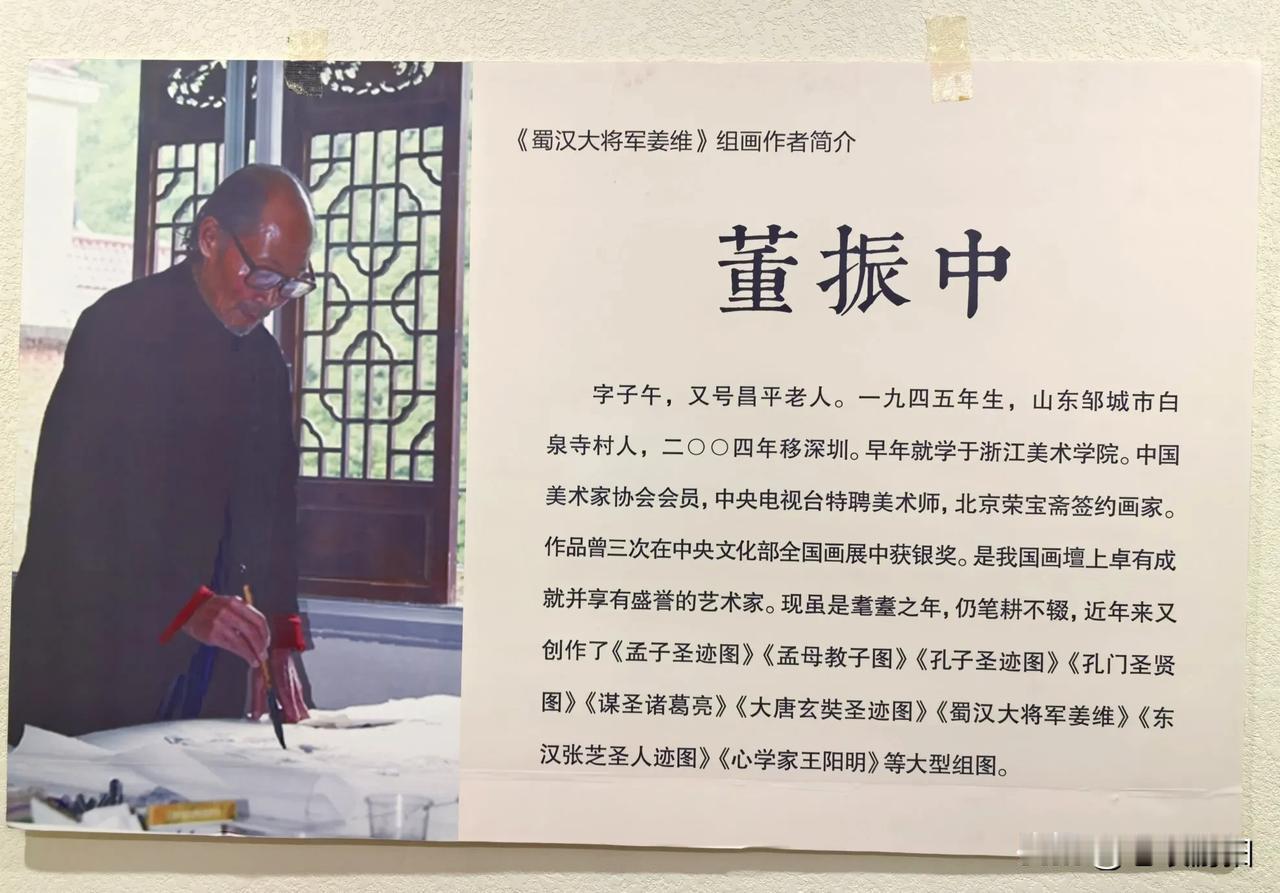 《蜀汉大将军姜维》组画作者简介
董振中
字子午，又号昌平老人。一九四五年生，山东邹城市白
泉寺村人，二〇〇四年移深圳。早年就学于浙江美术学院。中国
美术家协会会员，中央电视台特聘美术师，北京荣宝斋签约画家。
作品曾三次在中央文化部全国画展中获银奖。是我国画坛上卓有成
就并享有盛誉的艺术家。现虽是耄耋之年，仍笔耕不辍，近年来又
创作了《孟子圣迹图》《孟母教子图》《孔子圣迹图》《孔门圣贤
图》《谋圣诸葛亮》《大唐玄奘圣迹图》《蜀汉大将军姜维》《东
汉张芝圣人迹图》《心学家王阳明》等大型组图。